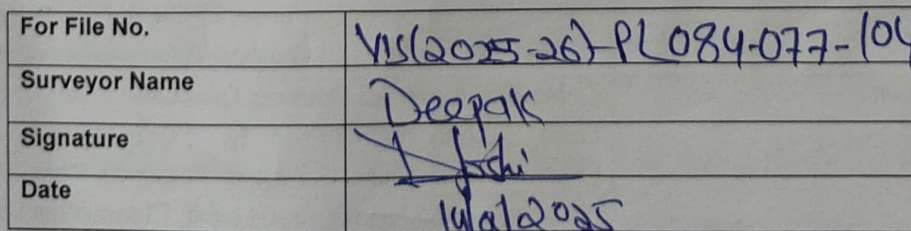 For File No. VIS(2025-26)-PL084-077-104
Surveyor Name Deepak
Signature Joshi
Date 2025